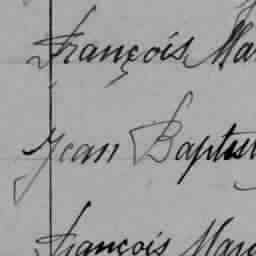 François Mar
Jean Baptist
François Marc